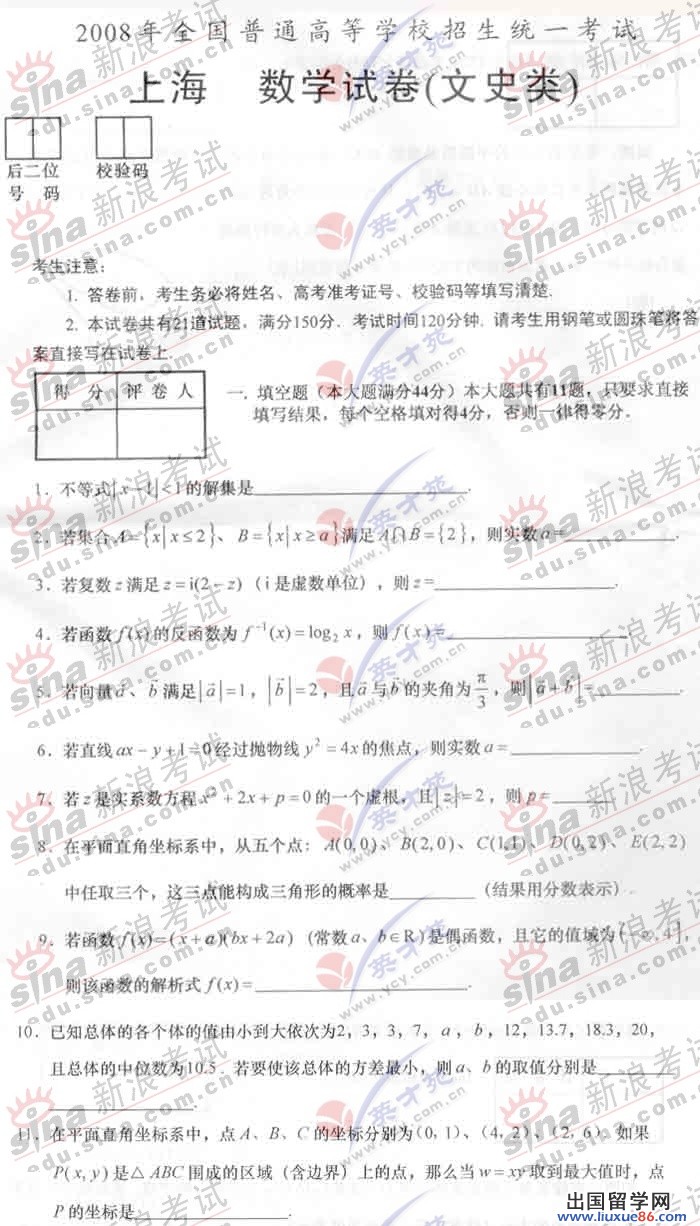 2008年全国普通高等学校招生统一考试
上海 数学试卷(文史类)
后二位 校验码
号 码
考生注意：
1. 答卷前，考生务必将姓名、高考准考证号、校验码等填写清楚.
2. 本试卷共有21道试题，满分150分. 考试时间120分钟. 请考生用钢笔或圆珠笔将答
案直接写在试卷上.
得 分 评 卷 人
一. 填空题（本大题满分44分）本大题共有11题，只要求直接
填写结果，每个空格填对得4分，否则一律得零分.
1. 不等式|x−1|<1的解集是____________.
2. 若集合A={x|x≤2}、B={x|x≥a}满足A∩B={2}，则实数a=____________.
3. 若复数z满足z=i(2−z)（i是虚数单位），则z=____________.
4. 若函数f(x)的反函数为f⁻¹(x)=log₂x，则f(x)=____________.
5. 若向量a⃗、b⃗满足|a⃗|=1，|b⃗|=2，且a⃗与b⃗的夹角为π/3，则|a⃗+b⃗|=____________.
6. 若直线ax−y+1=0经过抛物线y²=4x的焦点，则实数a=____________.
7. 若z是实系数方程x²+2x+p=0的一个虚根，且|z|=2，则p=______.
8. 在平面直角坐标系中，从五个点：A(0,0)、B(2,0)、C(1,1)、D(0,2)、E(2,2)
中任取三个，这三点能构成三角形的概率是____________（结果用分数表示）.
9. 若函数f(x)=(x+a)(bx+2a)（常数a、b∈R）是偶函数，且它的值域为(−∞,4]，
则该函数的解析式f(x)=____________.
10. 已知总体的各个体的值由小到大依次为2，3，3，7，a，b，12，13.7，18.3，20，
且总体的中位数为10.5. 若要使该总体的方差最小，则a、b的取值分别是____________
____________.
11. 在平面直角坐标系中，点A、B、C的坐标分别为(0,1)、(4,2)、(2,6). 如果
P(x,y)是△ABC围成的区域（含边界）上的点，那么当w=xy取到最大值时，点
P的坐标是____________.
sina新浪考试
edu.sina.com.cn
英才苑
www.ycy.com.cn
出国留学网
www.liuxue86.com